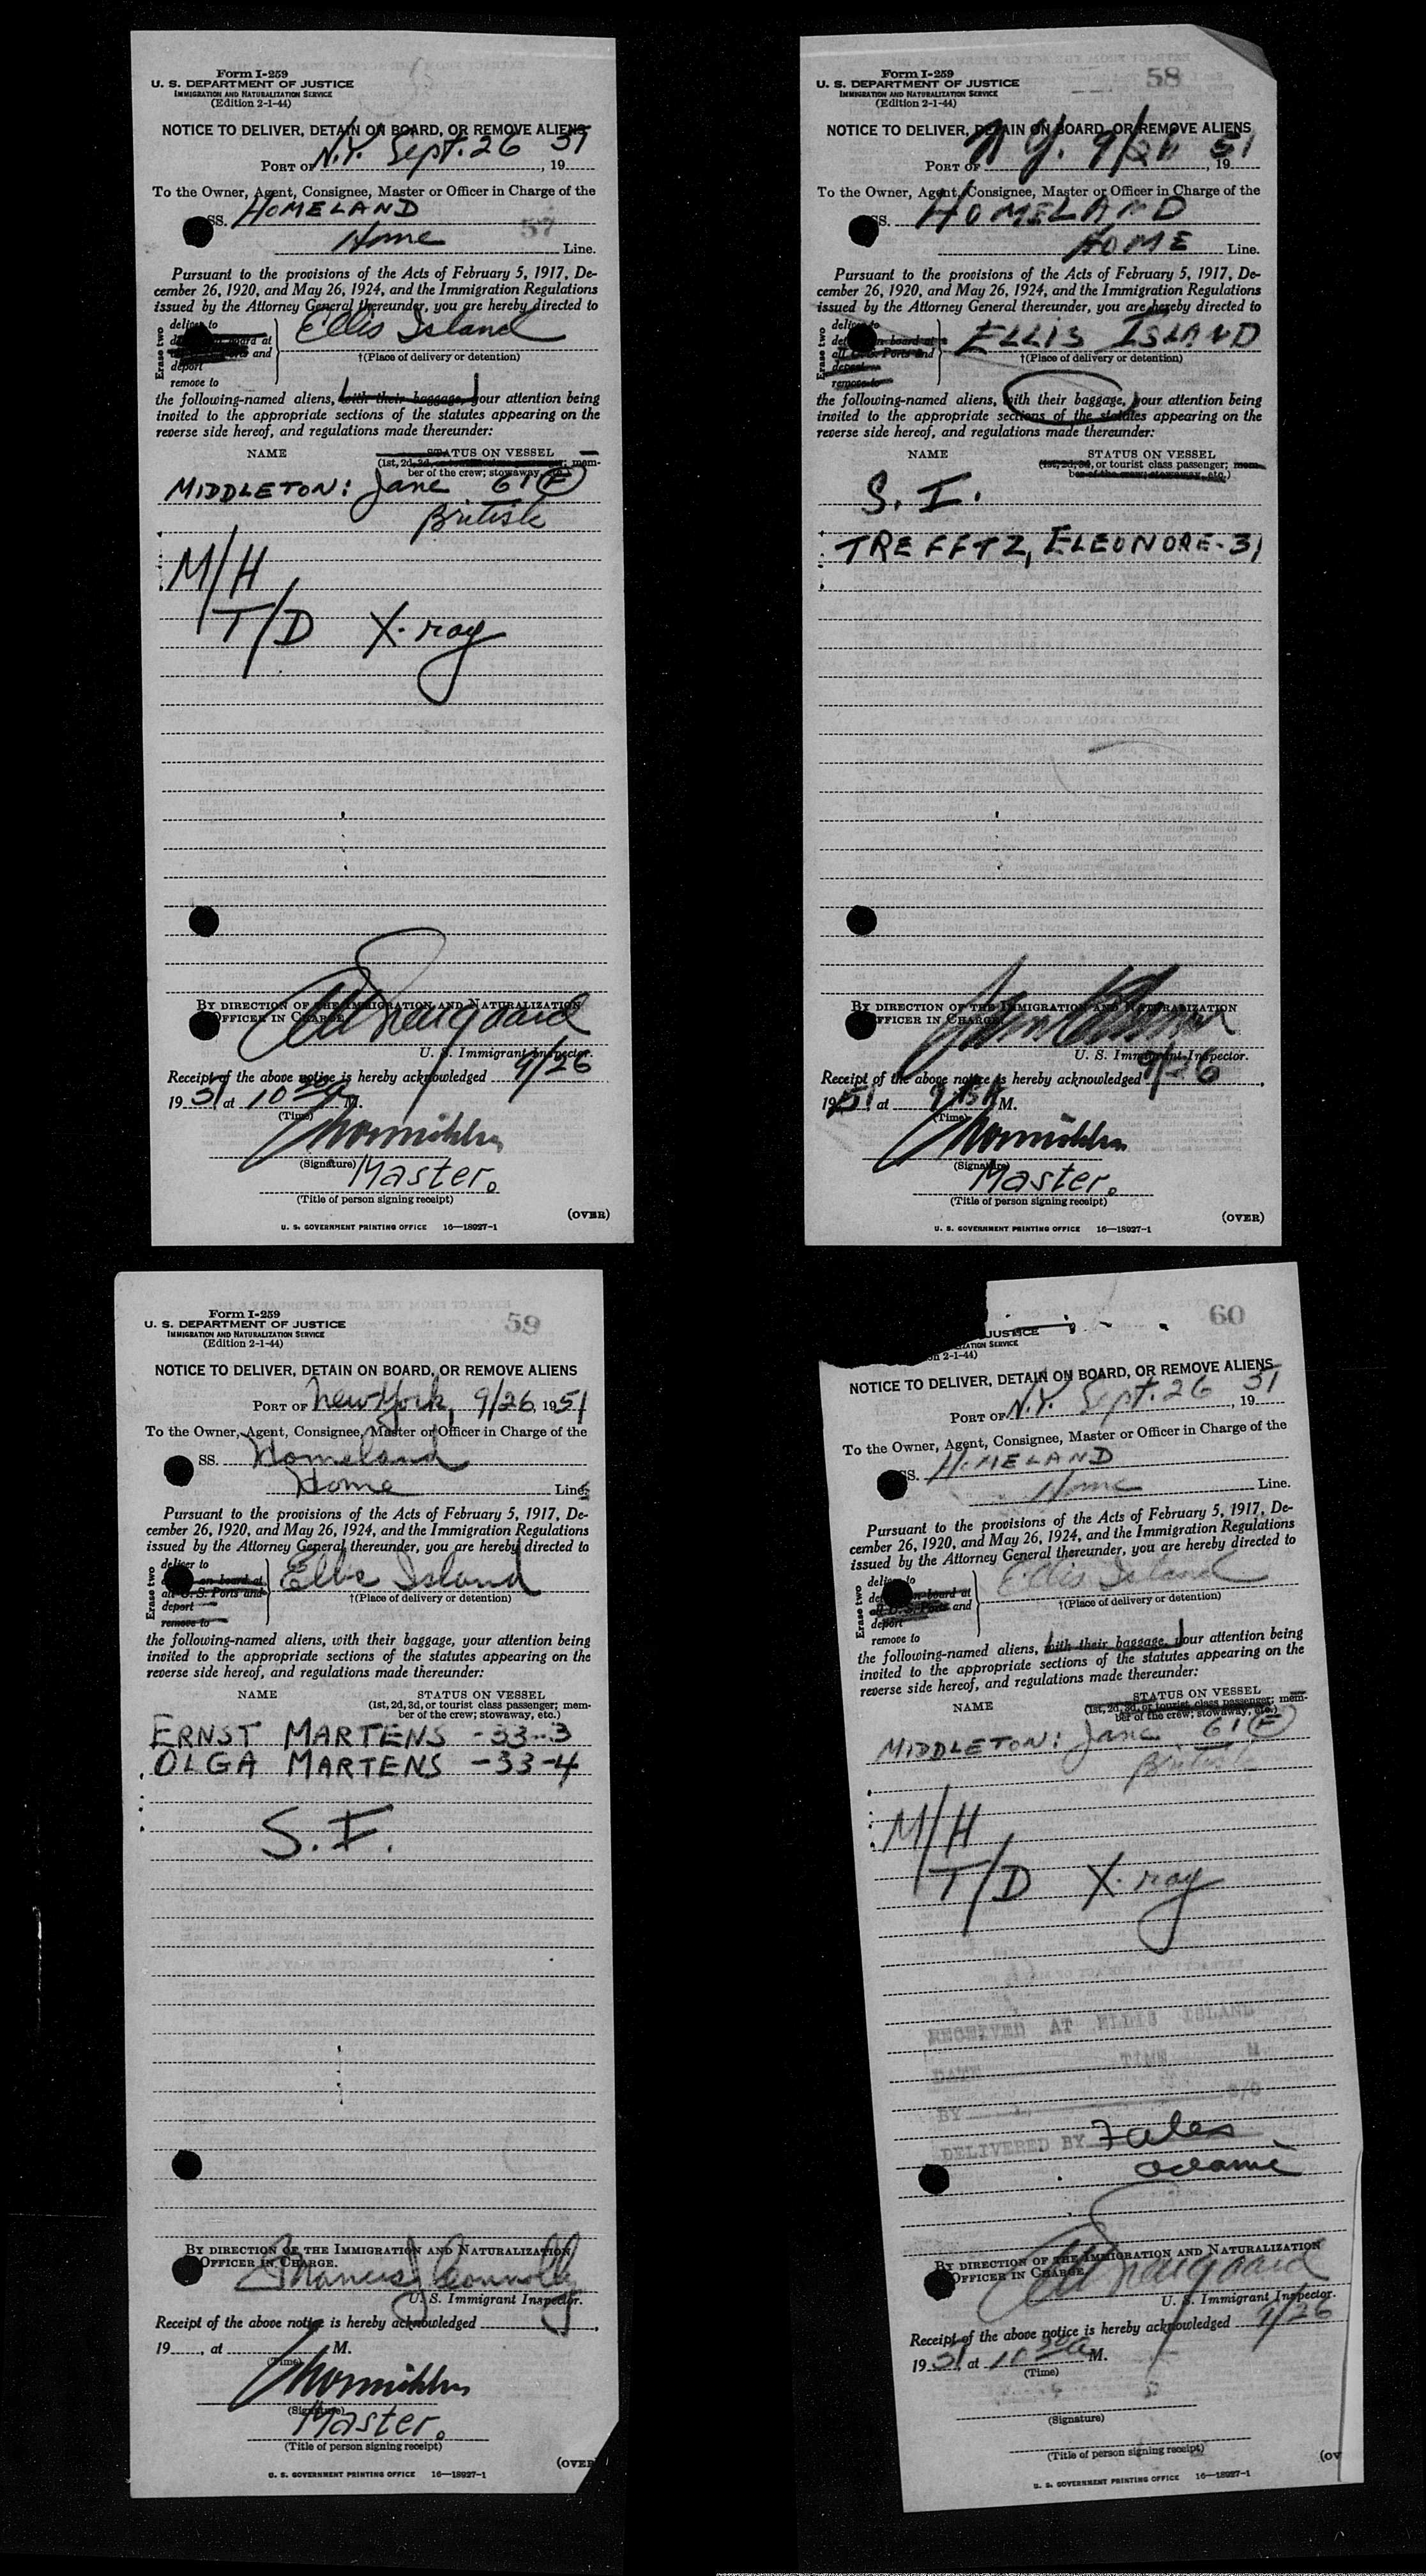 Form I-259
U. S. DEPARTMENT OF JUSTICE
IMMIGRATION AND NATURALIZATION SERVICE
(Edition 2-1-44)
NOTICE TO DELIVER, DETAIN ON BOARD, OR REMOVE ALIENS
PORT OF N.Y. Sept. 26, 1951
To the Owner, Agent, Consignee, Master or Officer in Charge of the
SS. HOMELAND
57
Home Line.
Pursuant to the provisions of the Acts of February 5, 1917, De-
cember 26, 1920, and May 26, 1924, and the Immigration Regulations
issued by the Attorney General thereunder, you are hereby directed to
Erase two
deliver to
board at
and
deport
remove to
Ellis Island
†(Place of delivery or detention)
the following-named aliens, with their baggage, your attention being
invited to the appropriate sections of the statutes appearing on the
reverse side hereof, and regulations made thereunder:
NAME STATUS ON VESSEL
(1st, 2d, 3d, or tourist class passenger; mem-
ber of the crew; stowaway, etc.)
MIDDLETON: Jane 61 F
British
M/H
T/D X-ray
BY DIRECTION OF THE IMMIGRATION AND NATURALIZATION
OFFICER IN CHARGE.
U. S. Immigrant Inspector.
Receipt of the above notice is hereby acknowledged 9/26
1951, at 10 30 A M.
(Time)
(Signature)
Master.
(Title of person signing receipt)
(OVER)
U. S. GOVERNMENT PRINTING OFFICE 16—18927-1
58
Form I-259
U. S. DEPARTMENT OF JUSTICE
IMMIGRATION AND NATURALIZATION SERVICE
(Edition 2-1-44)
NOTICE TO DELIVER, DETAIN ON BOARD, OR REMOVE ALIENS
PORT OF N.Y. 9/26, 1951
To the Owner, Agent, Consignee, Master or Officer in Charge of the
SS. HOMELAND
HOME Line.
Pursuant to the provisions of the Acts of February 5, 1917, De-
cember 26, 1920, and May 26, 1924, and the Immigration Regulations
issued by the Attorney General thereunder, you are hereby directed to
Erase two
deliver to
detain on board at
all U. S. Ports and
deport
remove to
ELLIS ISLAND
†(Place of delivery or detention)
the following-named aliens, with their baggage, your attention being
invited to the appropriate sections of the statutes appearing on the
reverse side hereof, and regulations made thereunder:
NAME STATUS ON VESSEL
(1st, 2d, 3d, or tourist class passenger; mem-
ber of the crew; stowaway, etc.)
S. I.
TREFFTZ, ELEONORE - 31
BY DIRECTION OF THE IMMIGRATION AND NATURALIZATION
OFFICER IN CHARGE.
U. S. Immigrant Inspector.
Receipt of the above notice is hereby acknowledged 9/26
1951, at M.
(Time)
(Signature)
Master.
(Title of person signing receipt)
(OVER)
U. S. GOVERNMENT PRINTING OFFICE 16—18927-1
59
Form I-259
U. S. DEPARTMENT OF JUSTICE
IMMIGRATION AND NATURALIZATION SERVICE
(Edition 2-1-44)
NOTICE TO DELIVER, DETAIN ON BOARD, OR REMOVE ALIENS
PORT OF New York, 9/26, 1951
To the Owner, Agent, Consignee, Master or Officer in Charge of the
SS. Homeland
Home Line.
Pursuant to the provisions of the Acts of February 5, 1917, De-
cember 26, 1920, and May 26, 1924, and the Immigration Regulations
issued by the Attorney General thereunder, you are hereby directed to
Erase two
deliver to
on board at
all U. S. Ports and
deport
remove to
Ellis Island
†(Place of delivery or detention)
the following-named aliens, with their baggage, your attention being
invited to the appropriate sections of the statutes appearing on the
reverse side hereof, and regulations made thereunder:
NAME STATUS ON VESSEL
(1st, 2d, 3d, or tourist class passenger; mem-
ber of the crew; stowaway, etc.)
ERNST MARTENS - 33-3
OLGA MARTENS - 33-4
S. I.
BY DIRECTION OF THE IMMIGRATION AND NATURALIZATION
OFFICER IN CHARGE.
Francis J Connolly
U. S. Immigrant Inspector.
Receipt of the above notice is hereby acknowledged
19, at M.
(Time)
(Signature)
Master.
(Title of person signing receipt)
(OVER
U. S. GOVERNMENT PRINTING OFFICE 16—18927-1
60
JUSTICE
SERVICE
2-1-44)
NOTICE TO DELIVER, DETAIN ON BOARD, OR REMOVE ALIENS
PORT OF N.Y. Sept. 26, 1951
To the Owner, Agent, Consignee, Master or Officer in Charge of the
SS. HOMELAND
Home Line.
Pursuant to the provisions of the Acts of February 5, 1917, De-
cember 26, 1920, and May 26, 1924, and the Immigration Regulations
issued by the Attorney General thereunder, you are hereby directed to
Erase two
deliver to
on board at
all U. S. Ports and
deport
remove to
Ellis Island
†(Place of delivery or detention)
the following-named aliens, with their baggage, your attention being
invited to the appropriate sections of the statutes appearing on the
reverse side hereof, and regulations made thereunder:
NAME STATUS ON VESSEL
(1st, 2d, 3d, or tourist class passenger; mem-
ber of the crew; stowaway, etc.)
MIDDLETON: Jane 61 F
British
M/H
T/D X-ray
RECEIVED AT ELLIS ISLAND
DATE TIME M
BY S/O
DELIVERED BY Fales
BY DIRECTION OF THE IMMIGRATION AND NATURALIZATION
OFFICER IN CHARGE.
U. S. Immigrant Inspector.
Receipt of the above notice is hereby acknowledged 9/26
1951, at 10 30 A M.
(Time)
(Signature)
(Title of person signing receipt)
(OV
U. S. GOVERNMENT PRINTING OFFICE 16—18927-1